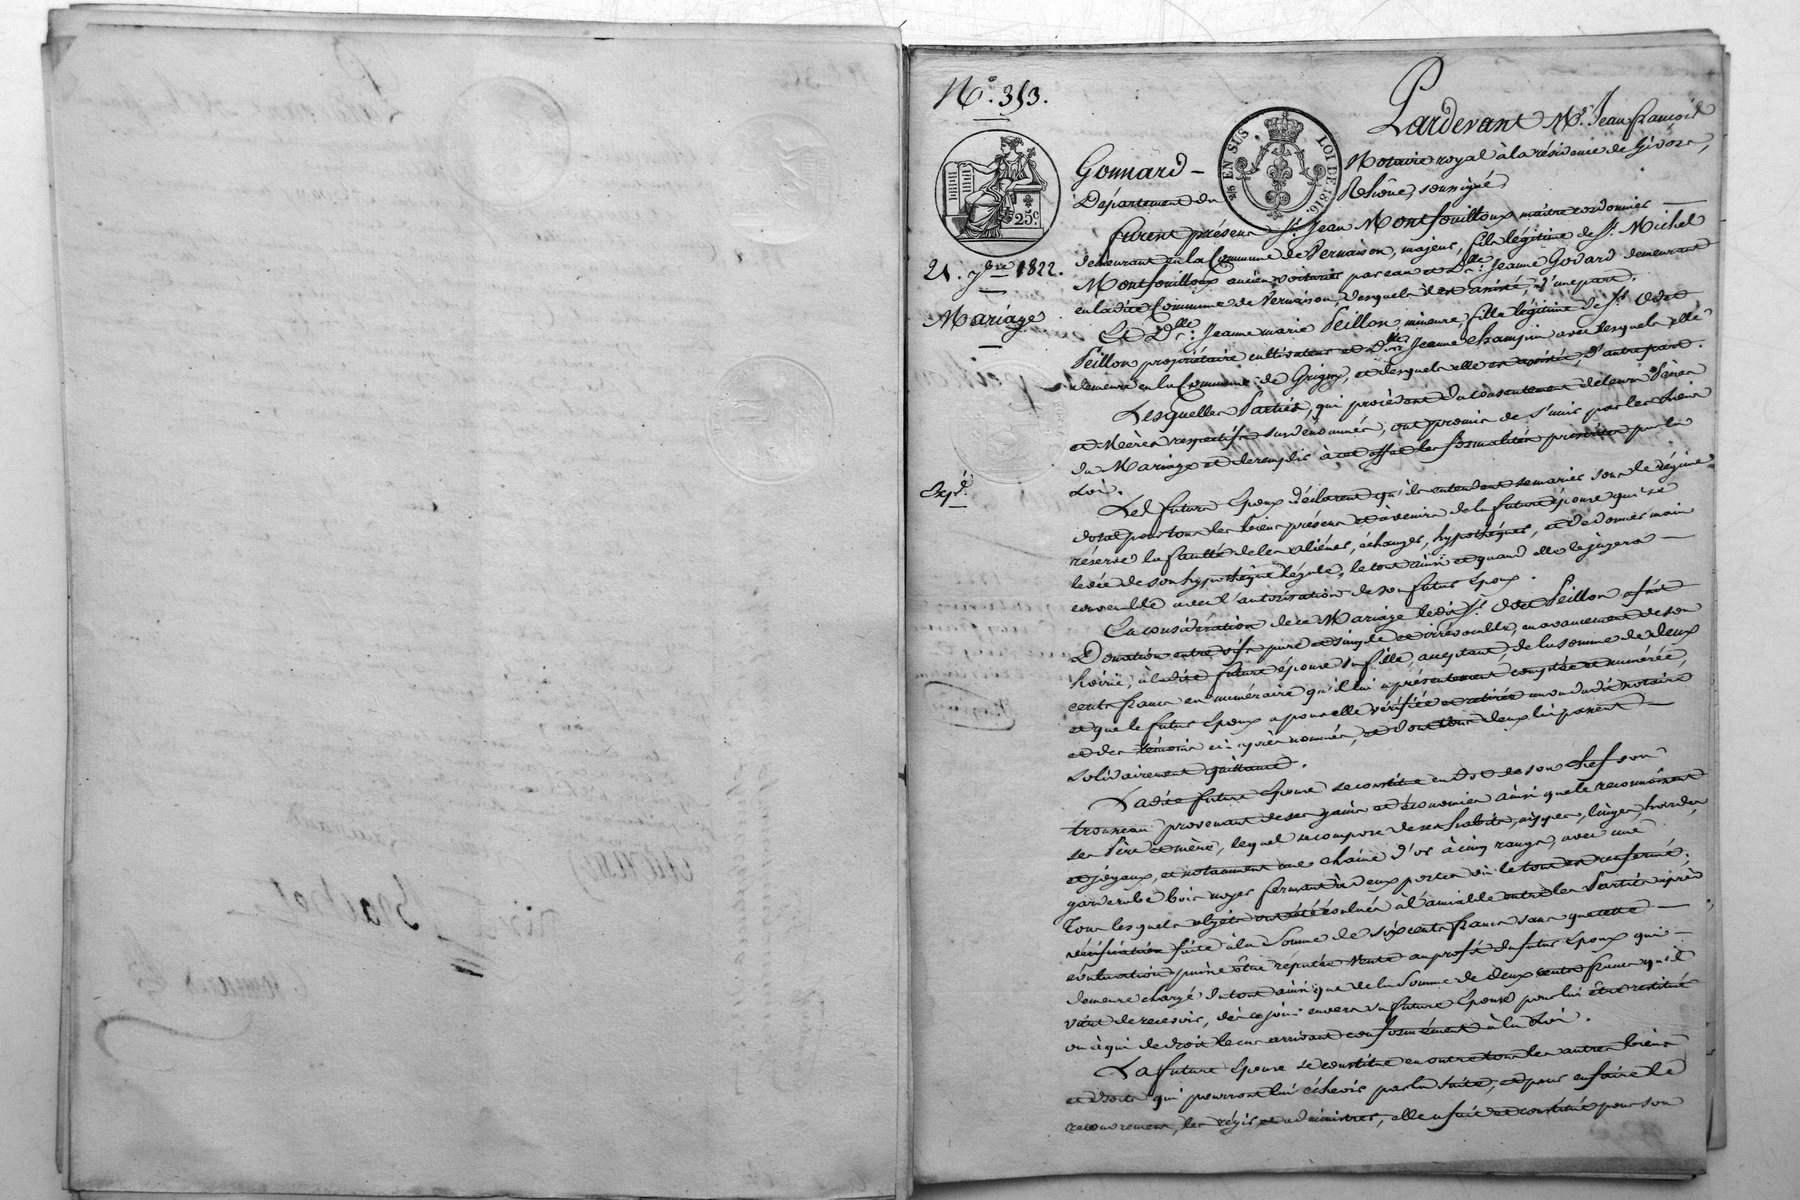 N.° 353.
Pardevant Me. Jean françois
Gonnard – Notaire royal à la résidence de Givors,
Département du Rhône, soussigné,
25 EN SUS LOI DE 1816.
25c
21. 7bre 1822.
Mariage
Expé.
furent présens Sr. Jean Montfouilloux maître cordonnier
demeurant en la Commune de Vernaison, majeur, fils légitime de Sr. Michel
Montfouilloux ancien voiturier par eau et Dlle. Jeanne Godard demeurant
en ladite Commune de Vernaison, desquels il est assisté, d'une part.
Et Dlle. Jeanne marie Peillon, mineure, fille légitime de Sr. Odet
Peillon propriétaire cultivateur et Dlle. Jeanne Champin avec lesquels elle
demeure en la Commune de Grigny, et desquels elle est assistée, d'autre part.
Lesquelles Parties, qui procèdent du consentement de leurs Pères
et Mères respectifs susdénommés, ont promis de s'unir par les liens
du Mariage et de remplir à cet effet les formalités prescrites par la
Loi.
Les futurs Epoux déclarent qu'ils entendent se marier sous le régime
dotal pour tous les biens présens et à venir de la future épouse qui se
réserve la faculté de les aliéner, échanger, hypothéquer, et de donner main
levée de son hypothèque légale, le tout ainsi et quand elle le jugera –
convenable avec l'autorisation de son futur Epoux.
En considération de ce Mariage ledit Sr. Odet Peillon a fait
Donation entre vifs pure et simple et irrévocable, en avancement de son
hoirie, à ladite future épouse sa fille, acceptant, de la somme de deux
cents francs en numéraire qu'il lui a présentement comptée et numérée,
et que le futur Epoux a pour elle vérifiée et retirée au vu du dit notaire
et des témoins ci-après nommés, et dont tous deux lui passent –
solidairement quittance.
Ladite future Epouse se constitue en dot de son chef son
trousseau provenant de ses gains et économies ainsi que le reconnaissent
ses Père et mère, lequel se compose de ses habits, nippes, linges, hardes,
et joyaux, et notamment une chaîne d'or à cinq rangs, avec une
garderobe bois noyer fermant à deux portes où le tout est renfermé;
Tous lesquels objets ont été évalués à l'amiable entre les Parties après
vérification faite à la Somme de six cents francs sans que cette –
évaluation puisse être réputée vente au profit du futur Epoux qui –
demeure chargé du tout ainsi que de la Somme de deux cents francs qu'il
vient de recevoir, dès ce jour envers sa future Epouse pour lui être restitué
ou à qui de droit le cas arrivant conformément à la Loi.
La future Epouse se constitue en outre tous les autres biens
et droits qui pourront lui échoir par la suite, et pour en faire le
recouvrement, les régir et administrer, elle a fait et constitué pour son